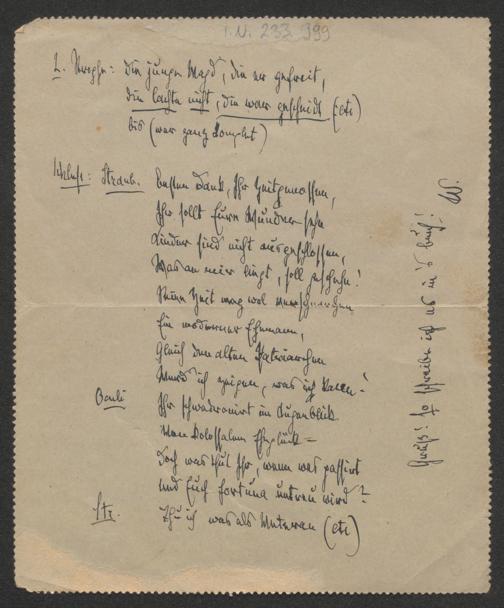 I.N. 233.999
2. Strophe: Die junge Magd, die er gefreit,
die lachte nicht, die war gescheidt (etc)
bis (war ganz komplet)
Schluß: Straub. Besten Dank, Ihr Zeitgenossen,
Ihr sollt Eure Wunder sehn
Kinder sind nicht ausgeschlossen,
Was an mir liegt, soll geschehn!
Seine Zeit mag wol
Ein moderner Ehemann,
Gleich den alten Patriarchen
Werd ich zeigen, was ich kann!
Pauli Ihr schwadronirt im Augenblick
Von kolossalem Eheglück =
Doch was thut Ihr, wenn was passirt
und Euch Fortuna untreu wird?
Str. Thu ich was als (etc)
Gruß! So schreibe ich es in's Buch! W.